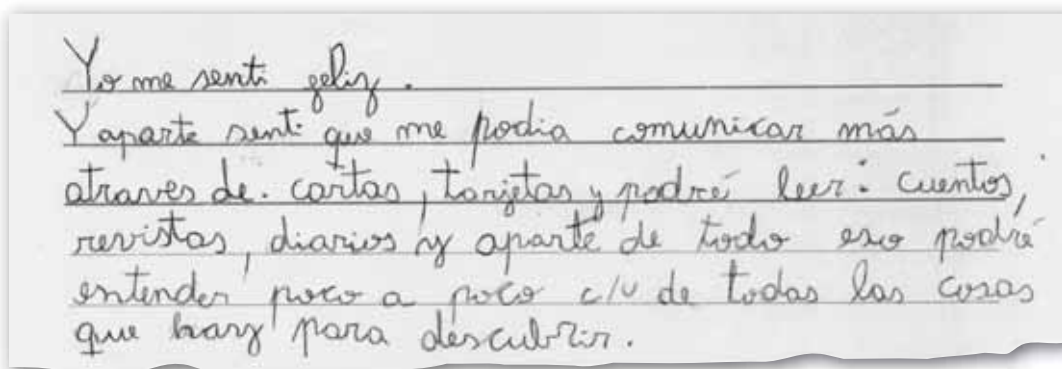 Yo me senti feliz.
Y aparte senti que me podia comunicar más
atraves de: cartas, tarjetas y podré leer: cuentos,
revistas, diarios y aparte de todo eso podré
entender poco a poco c/u de todas las cosas
que hay para descubrir.